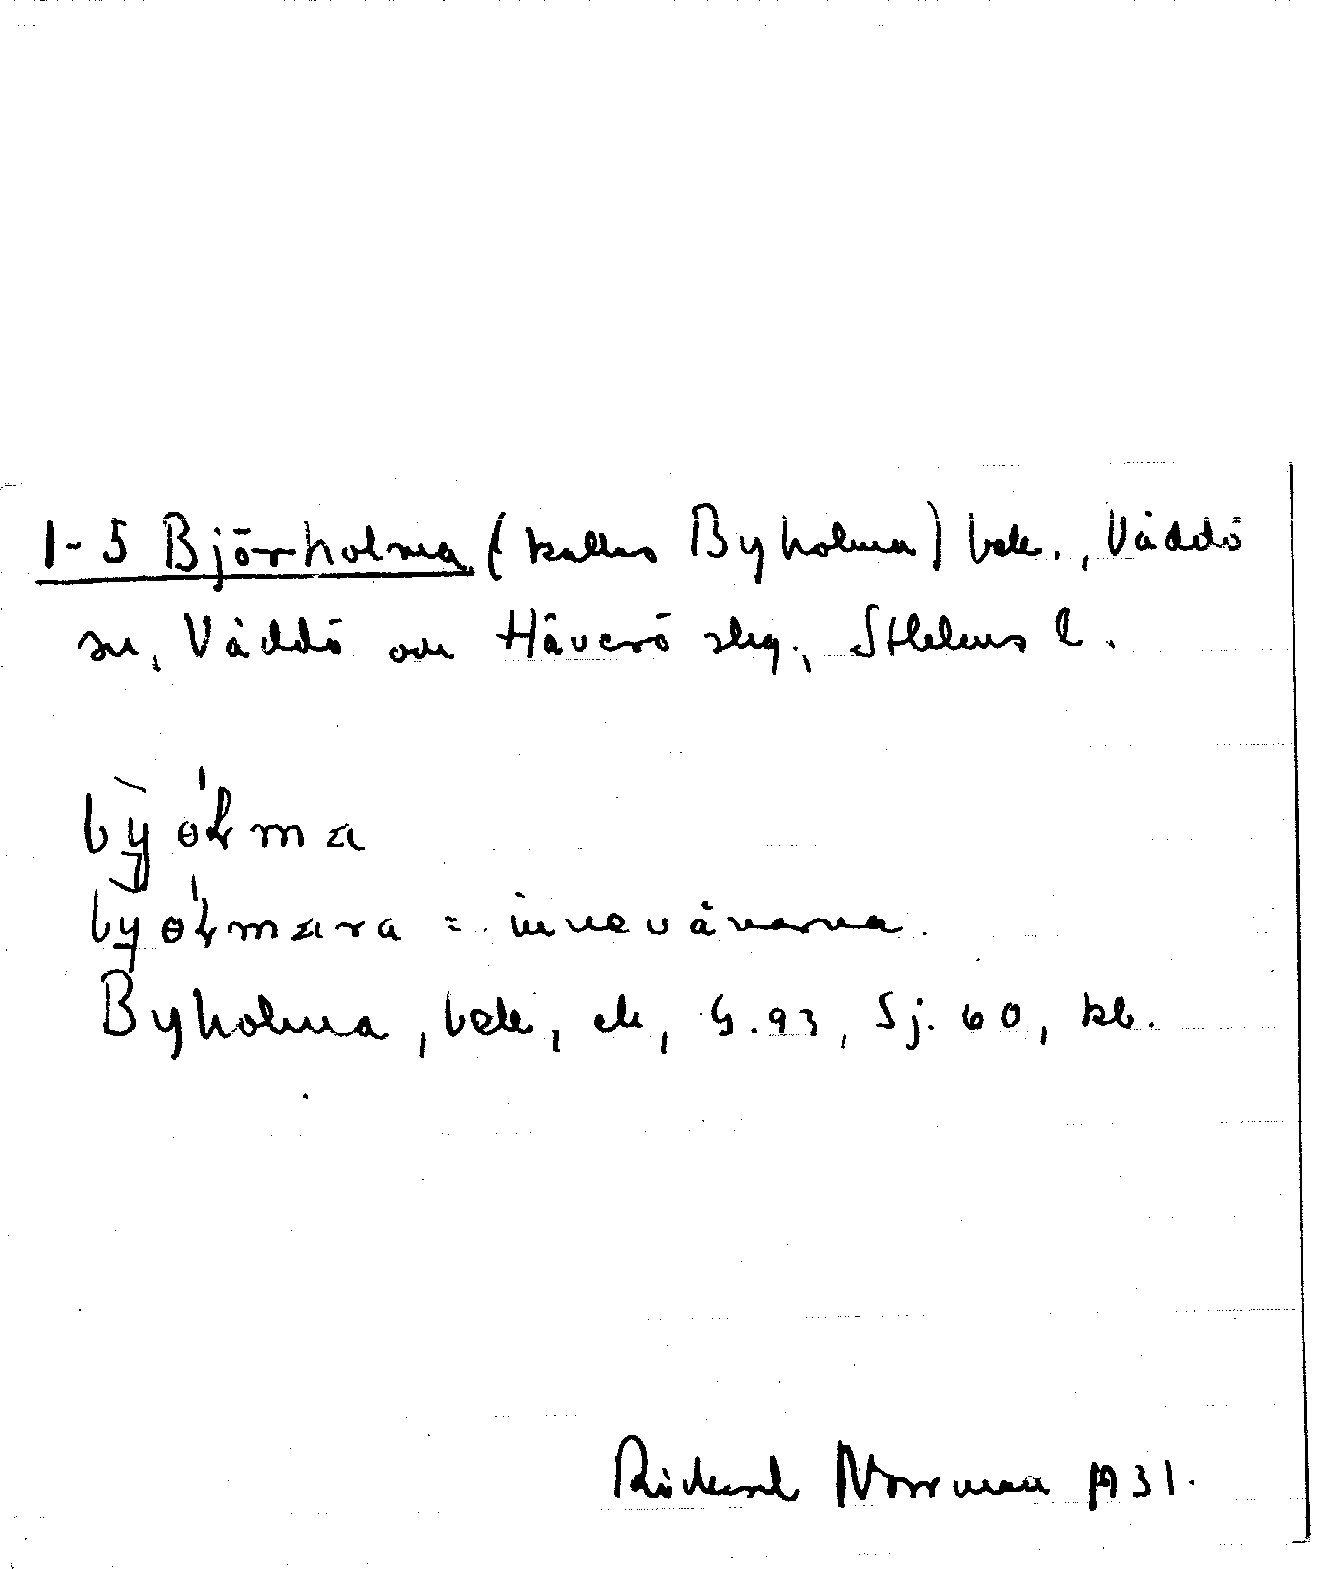 1-5 Björholma (kallas Byholma) bek., Väddö
sn, Väddö och Häverö skg., Sthlms l.
bỳ̠ ó̵ƚma
by̠ó̵ƚmara = innevånarna.
Byholma, bek, ek, G.93, Sj. 60, kb.
Rickard Norrman 1931.